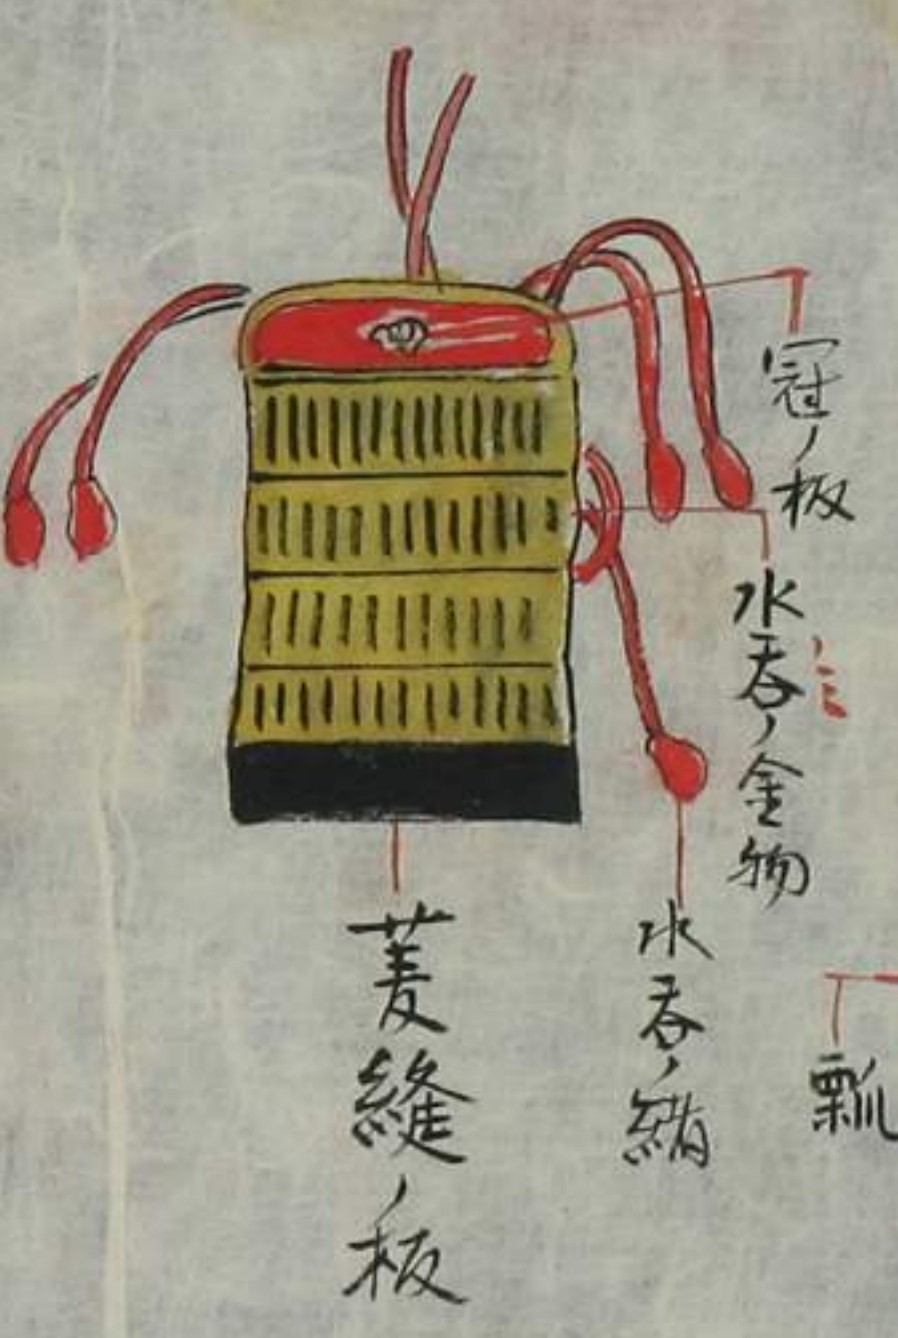 冠ノ板
水呑ノ金物
水呑ノ緒
菱縫ノ板
瓢